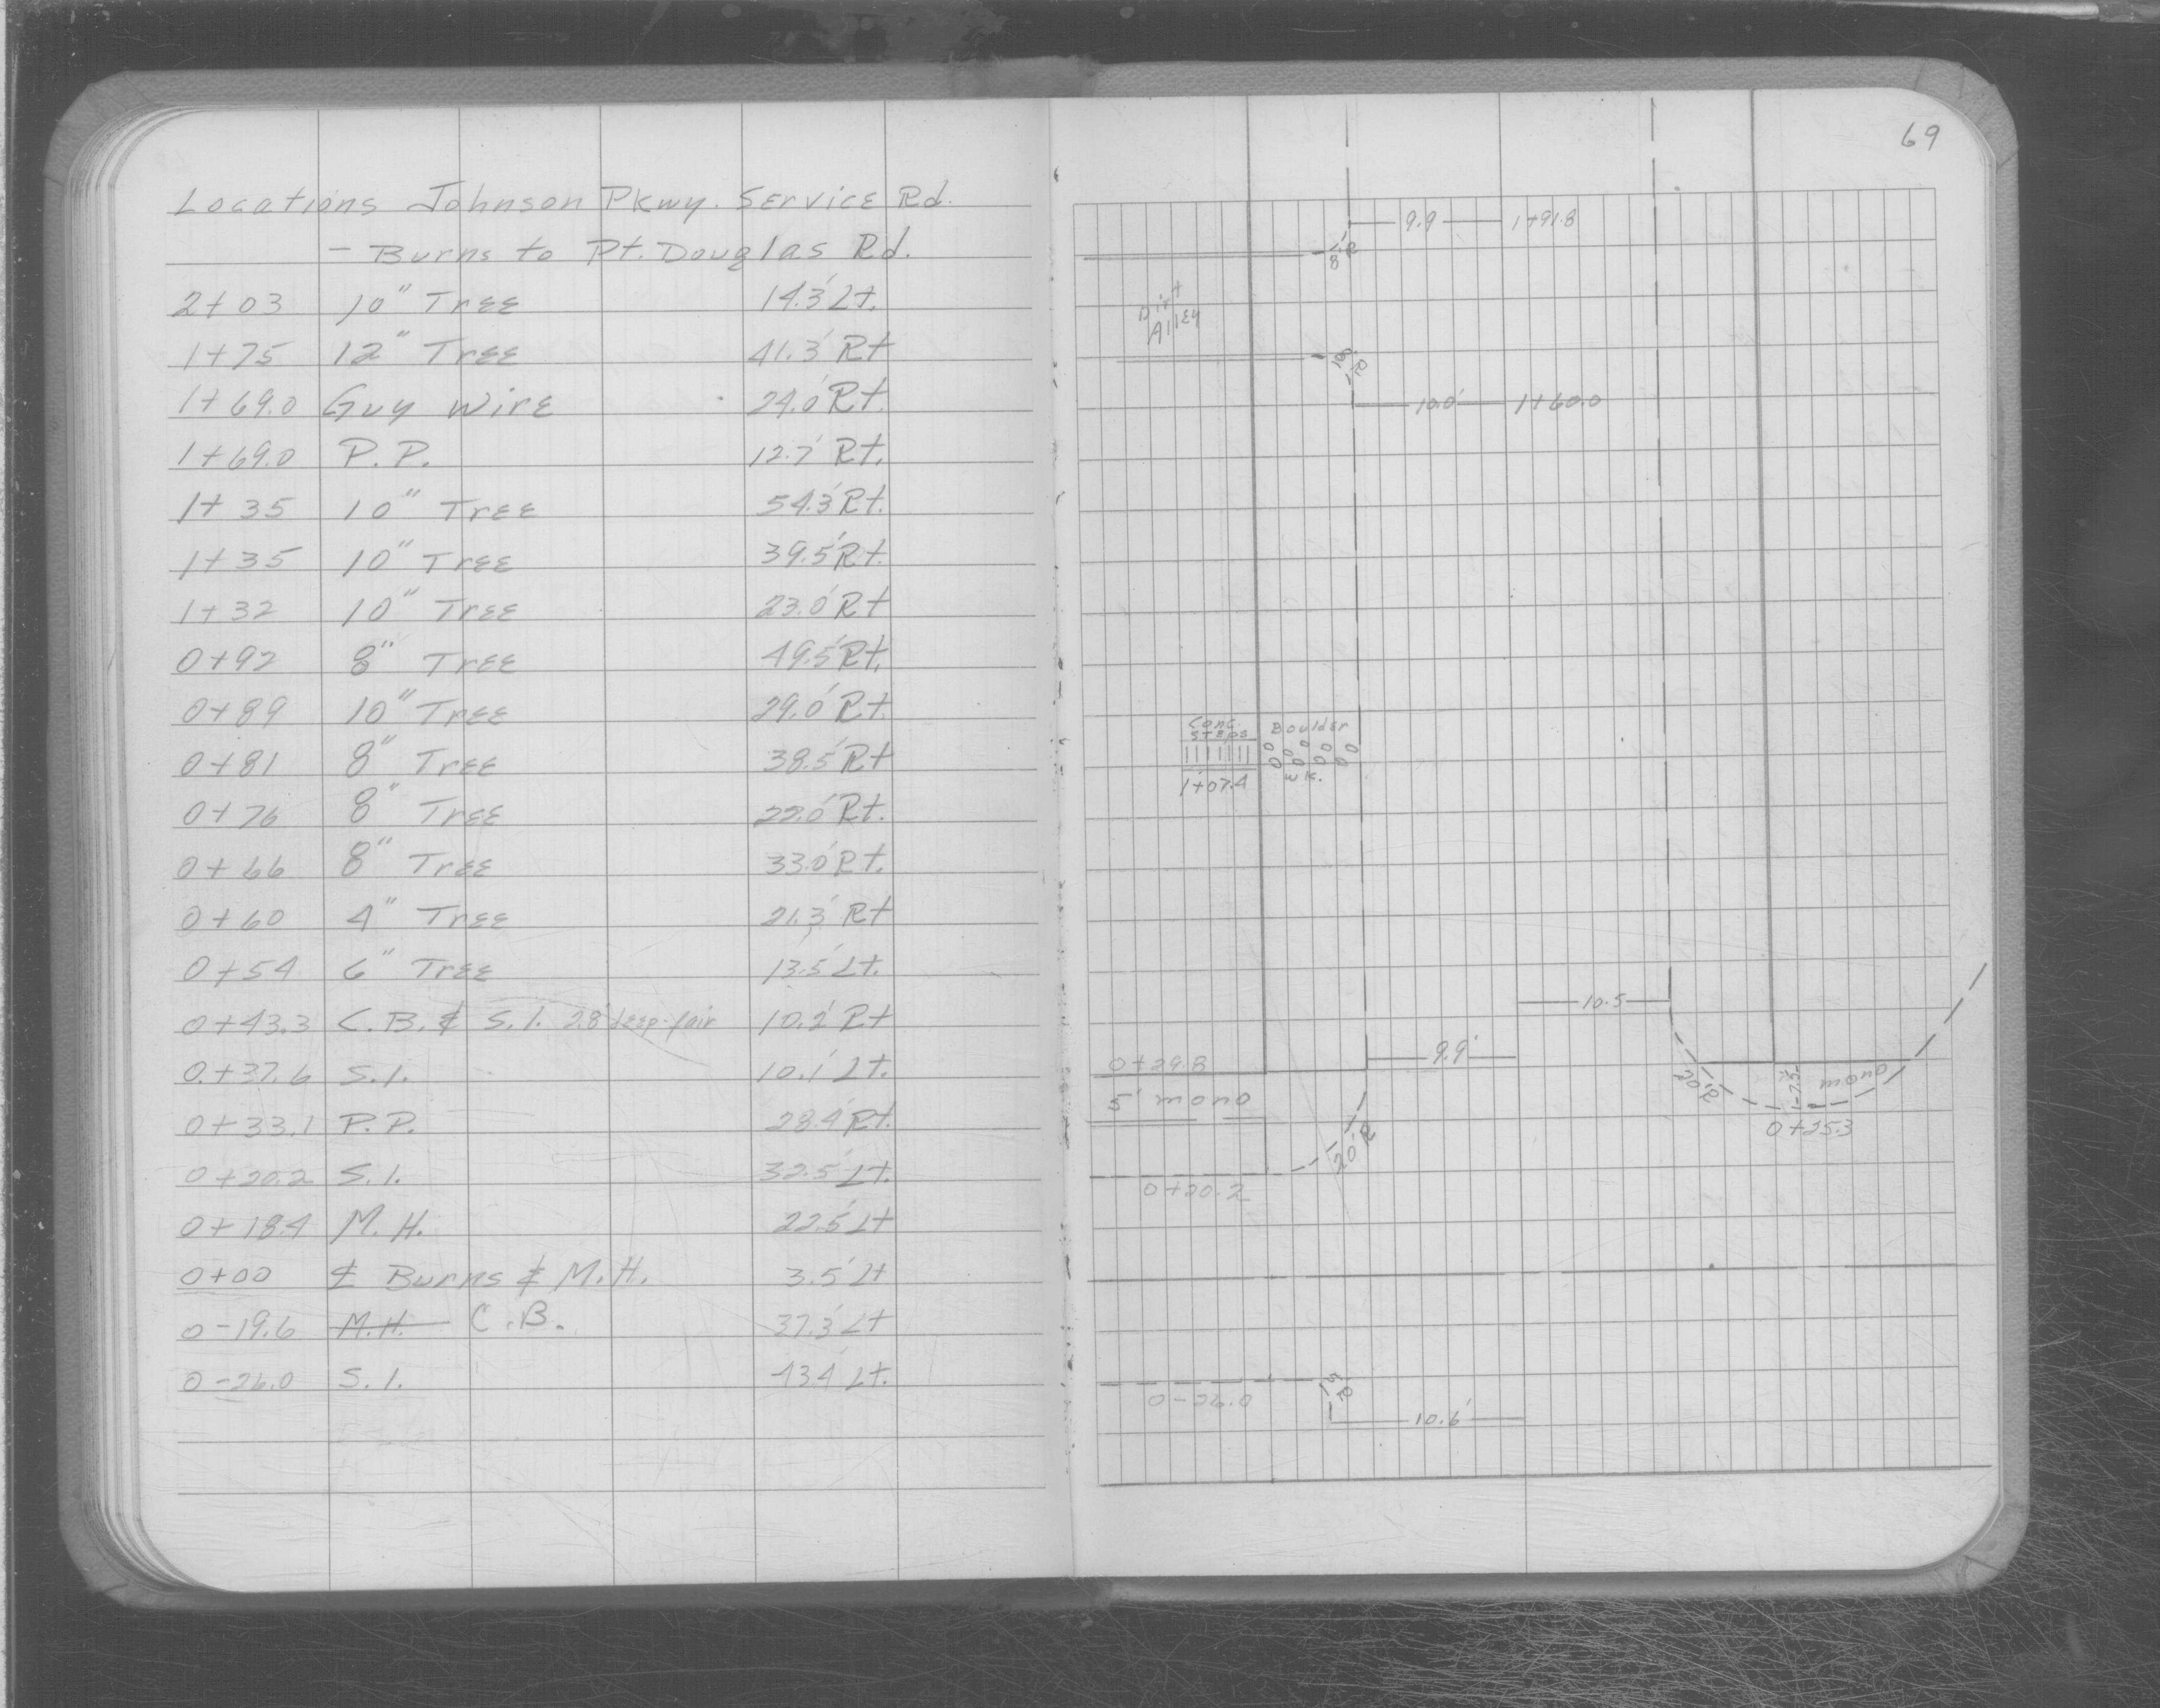 Locations Johnson Pkwy. Service Rd.
- Burns to Pt. Douglas Rd.
2+03 10" Tree 14.3' Lt.
1+75 12" Tree 41.3' Rt
1+69.0 Guy Wire 24.0' Rt.
1+69.0 P.P. 12.7' Rt.
1+35 10" Tree 54.3' Rt.
1+35 10" Tree 39.5' Rt.
1+32 10" Tree 23.0' Rt
0+92 8" Tree 49.5' Rt.
0+89 10" Tree 29.0' Rt.
0+81 8" Tree 38.5' Rt
0+76 8" Tree 22.0' Rt.
0+66 8" Tree 33.0' Rt.
0+60 4" Tree 21.3' Rt
0+54 6" Tree 13.5' Lt.
0+43.3 C.B. & S.I. 2.8' deep-fair 10.2' Rt
0+37.6 S.I. 10.1' Lt.
0+33.1 P.P. 28.4' Rt.
0+20.2 S.I. 32.5' Lt.
0+18.4 M.H. 22.5' Lt
0+00 ₵ Burns & M.H. 3.5' Lt
0-19.6 M.H. C.B. 37.3' Lt
0-26.0 S.I. 43.4' Lt.
69
9.9 1+91.8
8'R
Dirt
Alley
10.0' 1+60.0
Conc. Boulder
Steps
1+07.4 wk.
10.5
0+29.8 9.9'
5' mono
20'R 7.5' mono
0+25.3
20'R
0+20.2
15'R
0-26.0
10.6'